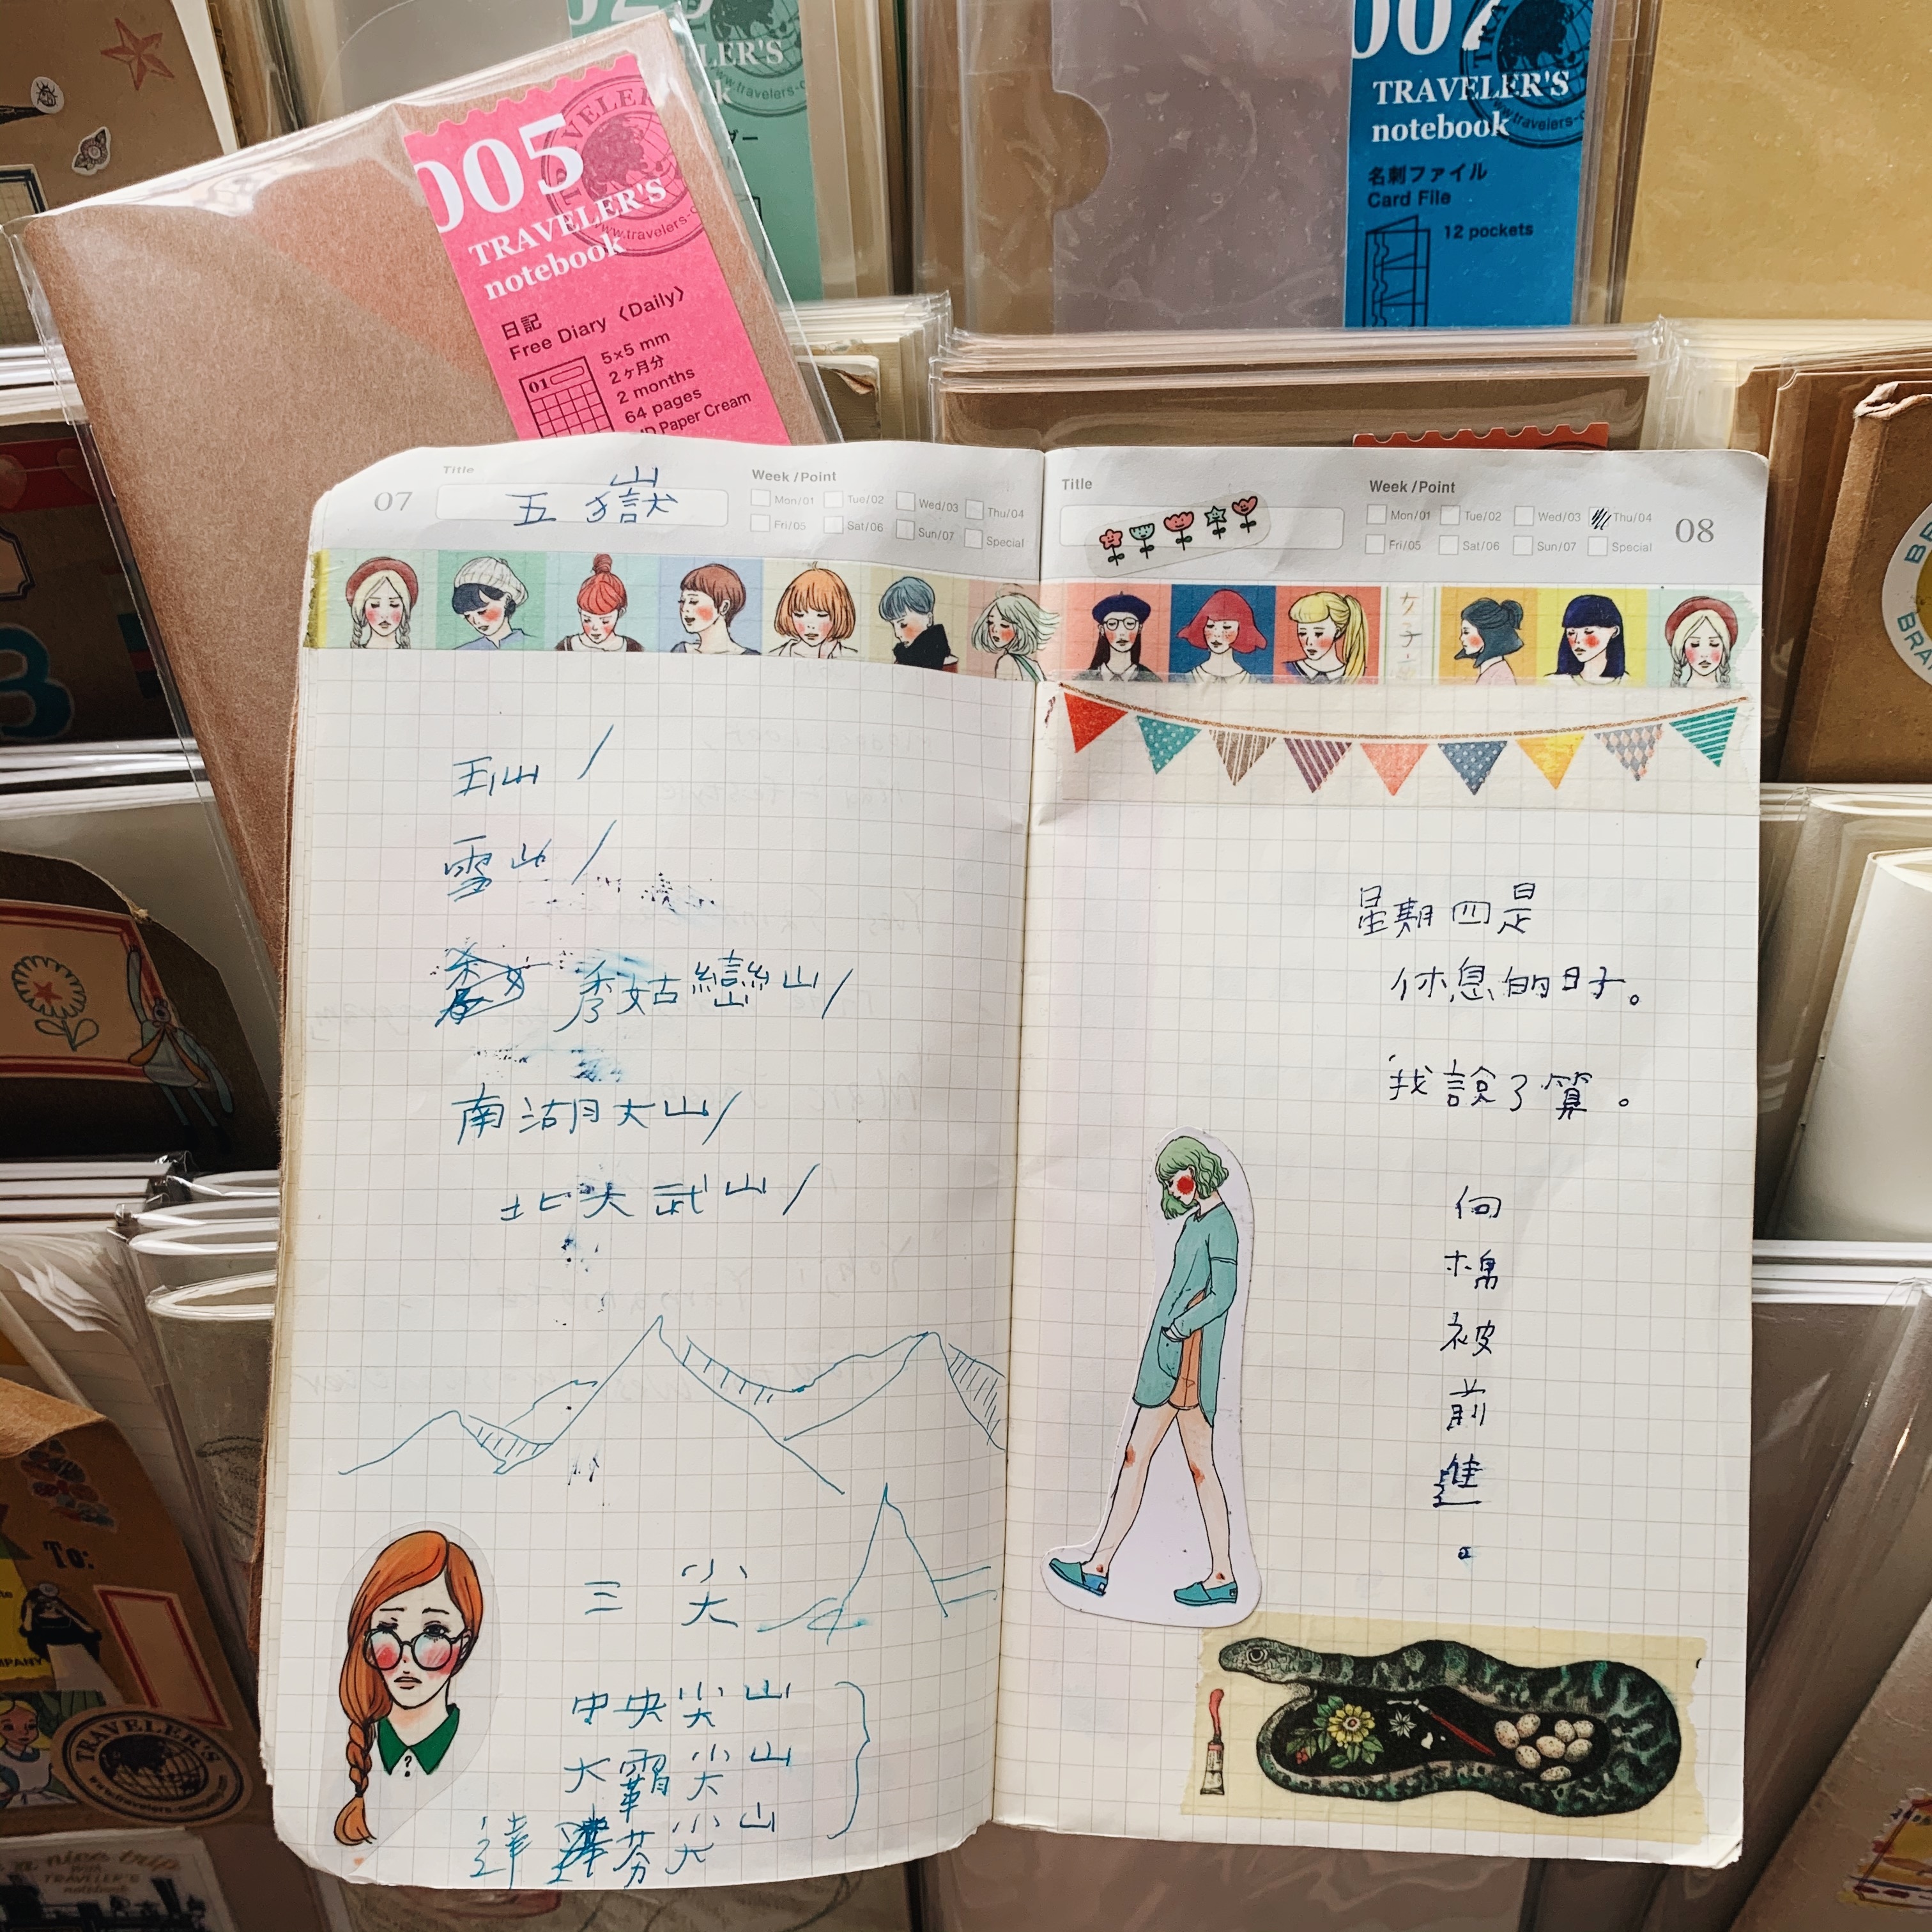 005
TRAVELER'S
notebook
日記
Free Diary 〈Daily〉
5×5 mm
2ヶ月分
2 months
64 pages
Paper Cream
01
007
TRAVELER'S
notebook
名刺ファイル
Card File
12 pockets
07
Title
五嶽
Week/Point
Mon/01 Tue/02 Wed/03 Thu/04
Fri/05 Sat/06 Sun/07 Special
玉山/
雪山/
秀姑巒山/
南湖大山/
北大武山/
三尖
中央尖山
大霸尖山
達芬尖山
?
Title
Week/Point
Mon/01 Tue/02 Wed/03 Thu/04
Fri/05 Sat/06 Sun/07 Special
08
星期四是
休息的日子。
我說了算。
向
棉
被
前
進
。
To:
TRAVELER'S
a nice trip
With
TRAVELER'S
notebook